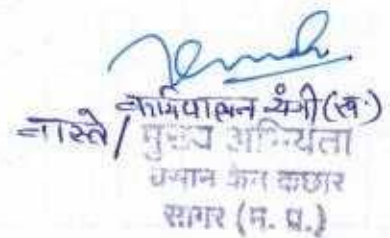 कार्यपालन यंत्री (स.)
वास्ते/ मुख्य अभियंता
धसान केन कछार
सागर (म. प्र.)